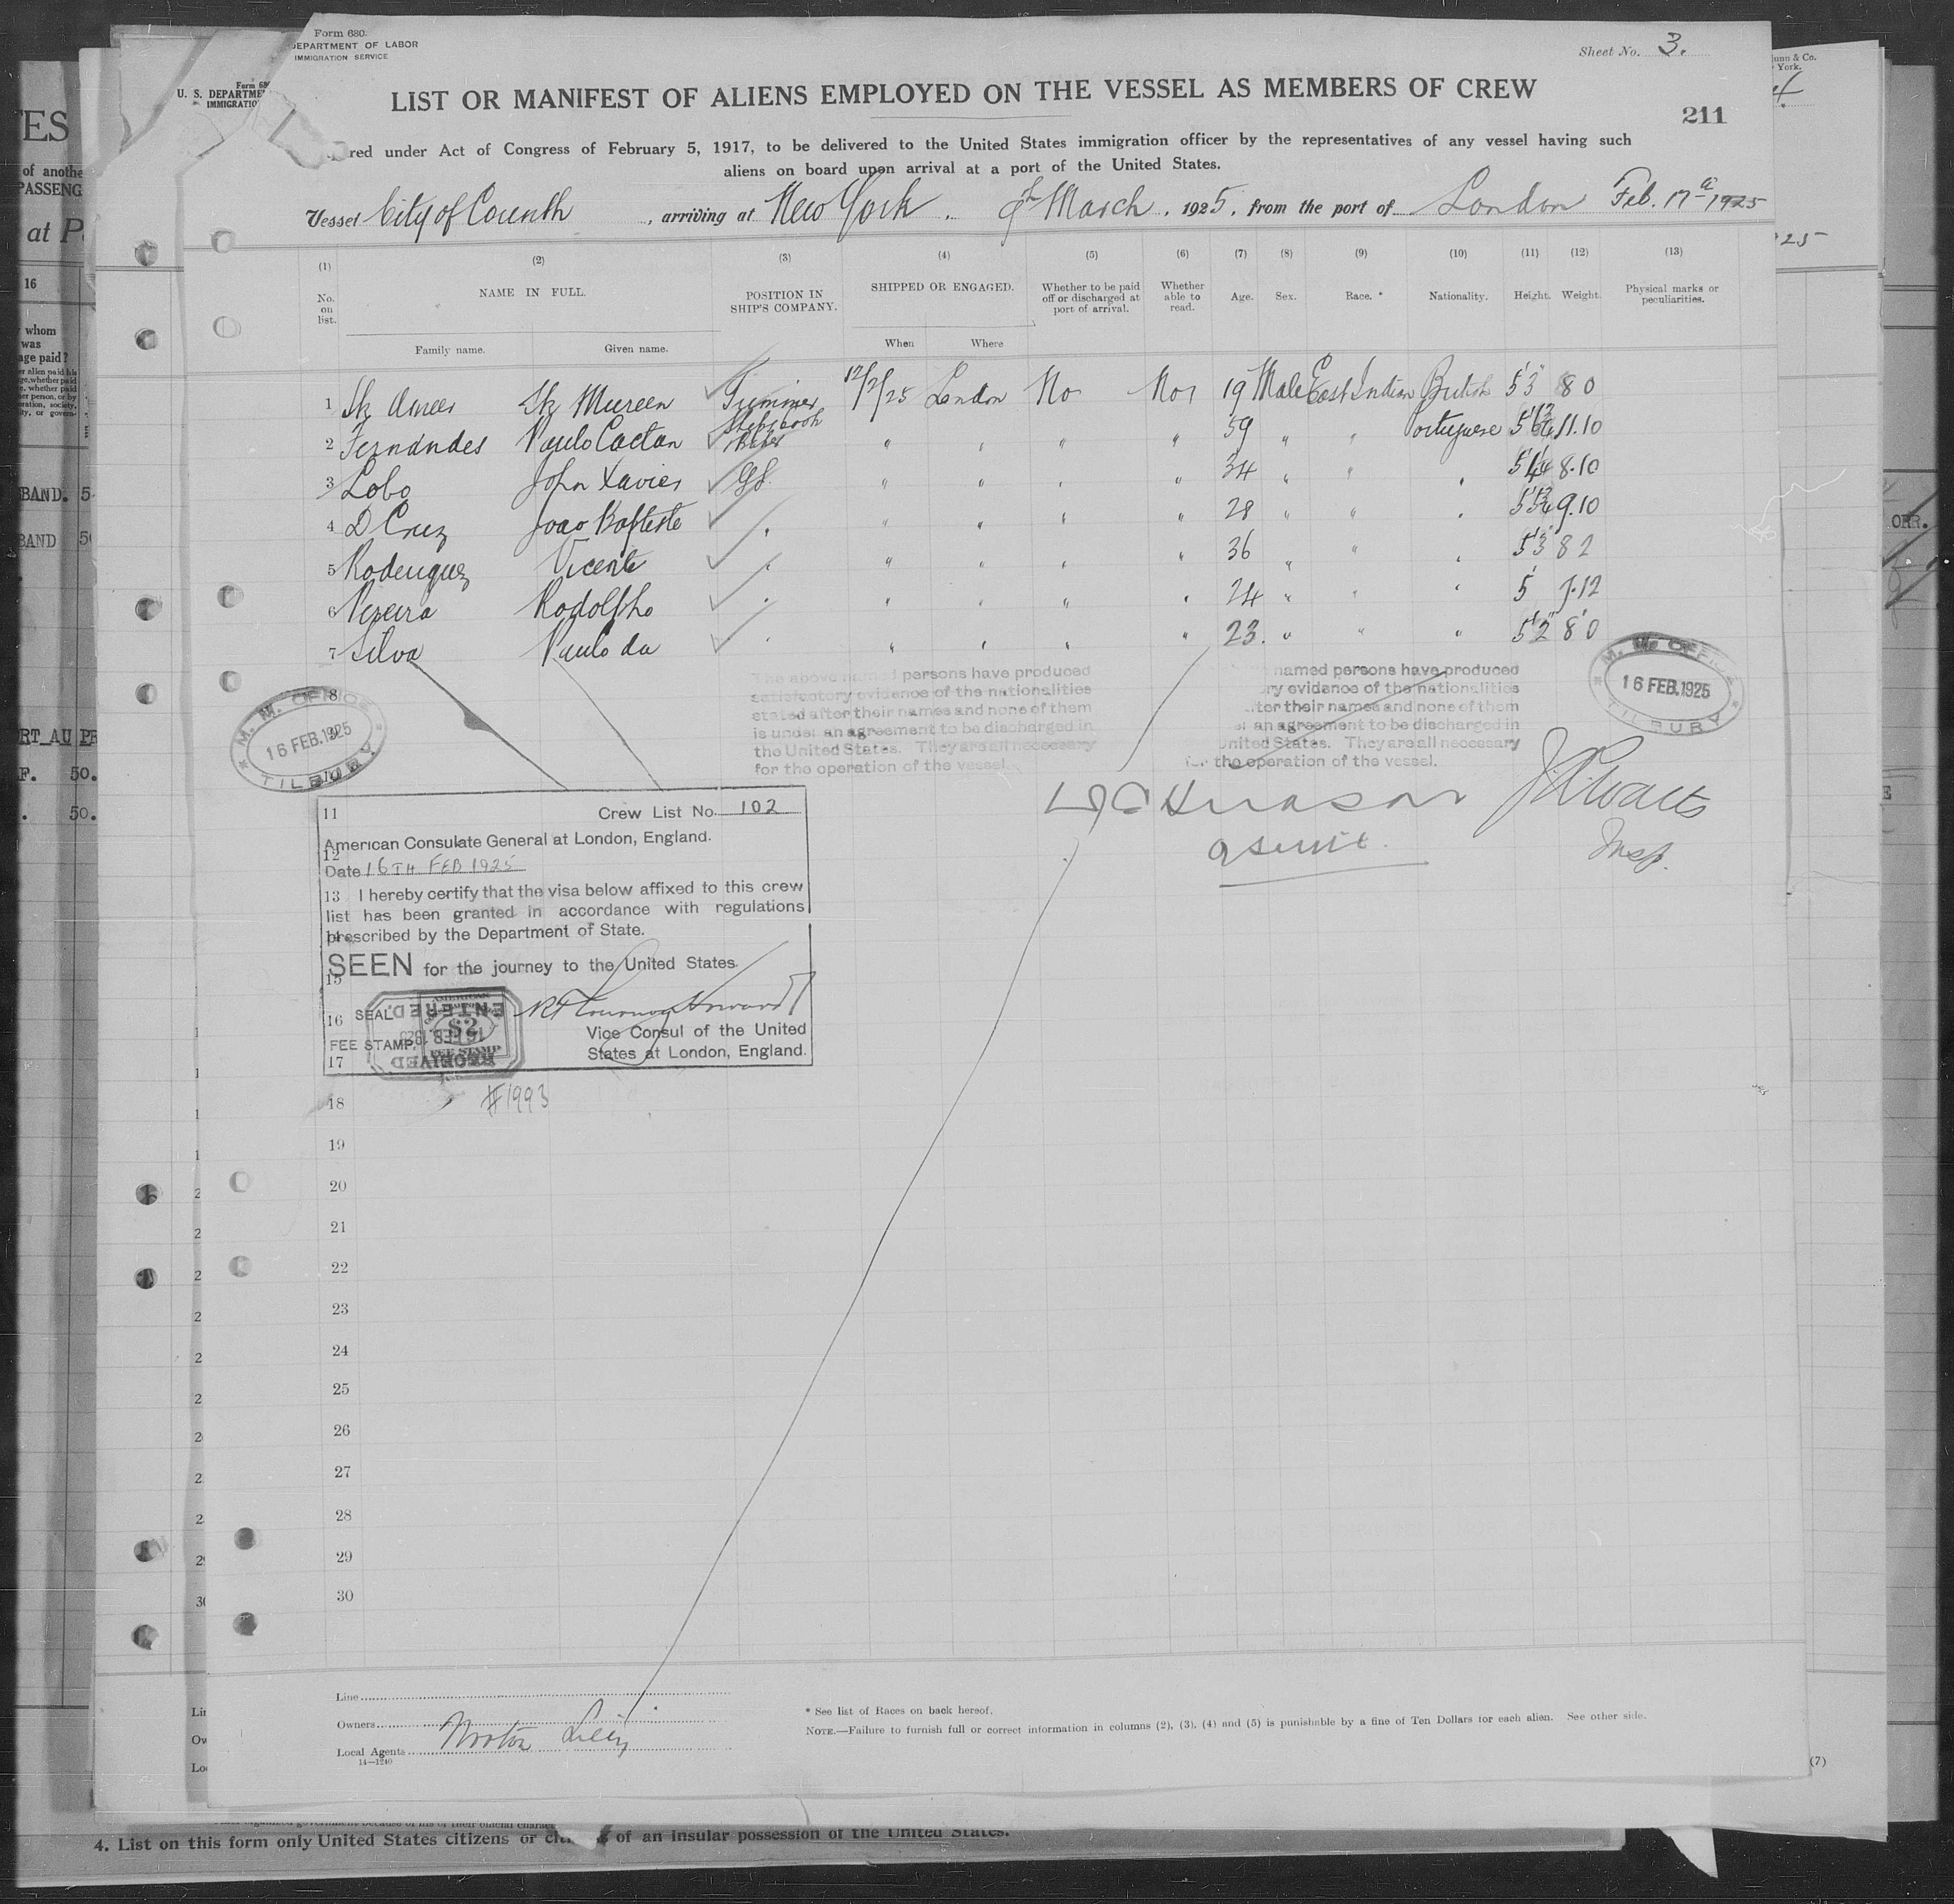 Form 680.
DEPARTMENT OF LABOR
IMMIGRATION SERVICE
Sheet No. 3.
LIST OR MANIFEST OF ALIENS EMPLOYED ON THE VESSEL AS MEMBERS OF CREW
211
red under Act of Congress of February 5, 1917, to be delivered to the United States immigration officer by the representatives of any vessel having such
aliens on board upon arrival at a port of the United States.
Vessel City of Corinth, arriving at New York, March, 1925, from the port of London Feb. 17th 1925
(1) (2) (3) (4) (5) (6) (7) (8) (9) (10) (11) (12) (13)
No. on list. NAME IN FULL. POSITION IN SHIP'S COMPANY. SHIPPED OR ENGAGED. Whether to be paid off or discharged at port of arrival. Whether able to read. Age. Sex. Race. * Nationality. Height. Weight. Physical marks or peculiarities.
Family name. Given name. When Where
1 Sk Ameer Sk Mureen Trimmer 12/2/25 London No 19 Male East Indian British 5'3" 8 0
2 Fernandes Paulo Caetan Baker " " " " 59 " " Portuguese 11.10
3 Lobo John Xavier G.S. " " " " 34 " " " 8.10
4 D Cruz Joao Baptiste " " " " " 28 " " " 9.10
5 Rodrigues Vicente " " " " " 36 " " " 5'3" 8 2
6 Pereira Rodolpho " " " " " 24 " " " 5' 7.12
7 Silva Paulo da " " " " " 23. " " " 5'2" 8 0
The above named persons have produced
satisfactory evidence of the nationalities
stated after their names and none of them
is under an agreement to be discharged in
the United States. They are all necessary
for the operation of the vessel.
named persons have produced
ry evidence of the nationalities
after their names and none of them
an agreement to be discharged in
United States. They are all necessary
for the operation of the vessel.
M. M. OFFICE
16 FEB. 1925
TILBURY
M. M. OFFICE
16 FEB. 1925
TILBURY
8
9
10
11
Crew List No. 102
American Consulate General at London, England.
12
Date 16TH FEB 1925
13
I hereby certify that the visa below affixed to this crew
list has been granted in accordance with regulations
14
prescribed by the Department of State.
SEEN for the journey to the United States.
15
16
SEAL
ENTERED.
FEE STAMP.
RECEIVED
17
Vice Consul of the United
States at London, England.
Insp.
#1993
18
19
20
21
22
23
24
25
26
27
28
29
30
Line
Owners
Local Agents Norton Lilly
14—1240
* See list of Races on back hereof.
NOTE.—Failure to furnish full or correct information in columns (2), (3), (4) and (5) is punishable by a fine of Ten Dollars for each alien. See other side.
4. List on this form only United States citizens or of an insular possession of the United States.